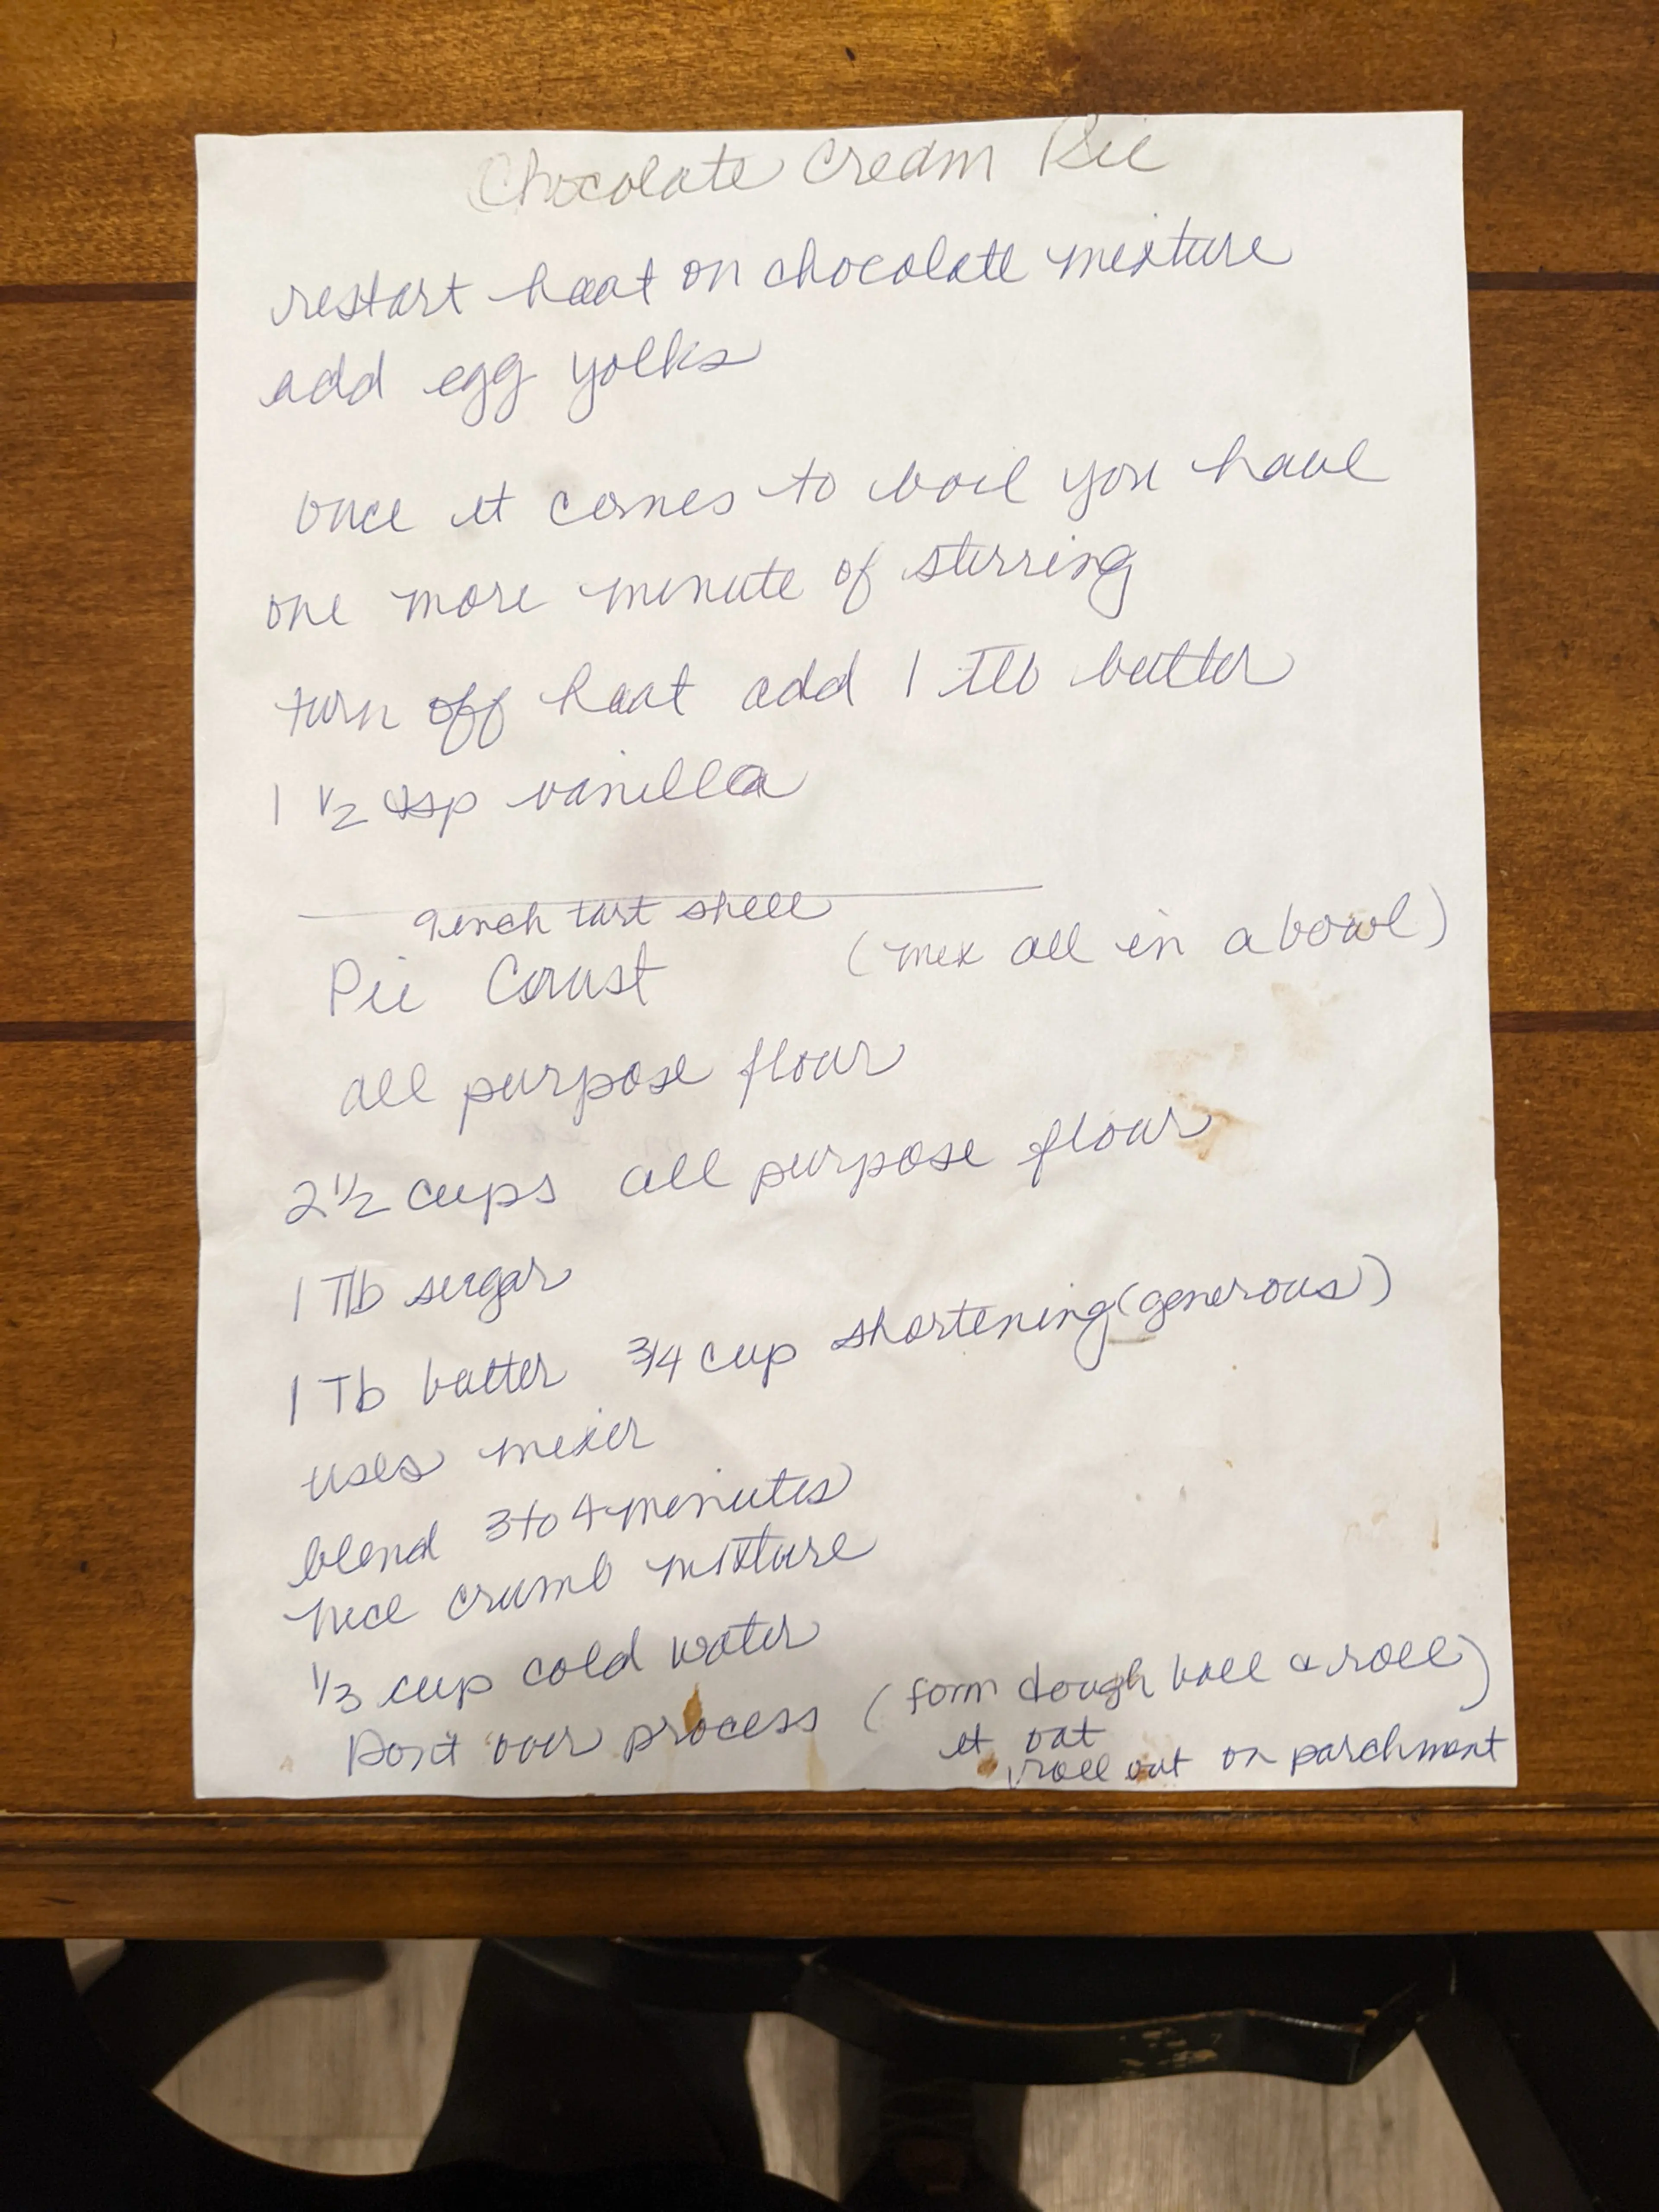 Chocolate Cream Pie
restart heat on chocolate mixture
add egg yolks
once it comes to boil you have
one more minute of stirring
turn off heat add 1 Tlb butter
1 1/2 tsp vanilla
9 inch tart shell
Pie Crust (mix all in a bowl)
all purpose flour
2 1/2 cups all purpose flour
1 Tlb sugar
1 Tb butter 3/4 cup shortening (generous)
uses mixer
blend 3 to 4 minutes
nice crumb mixture
1/3 cup cold water
Don't over process (form dough ball & roll)
it out
roll out on parchment